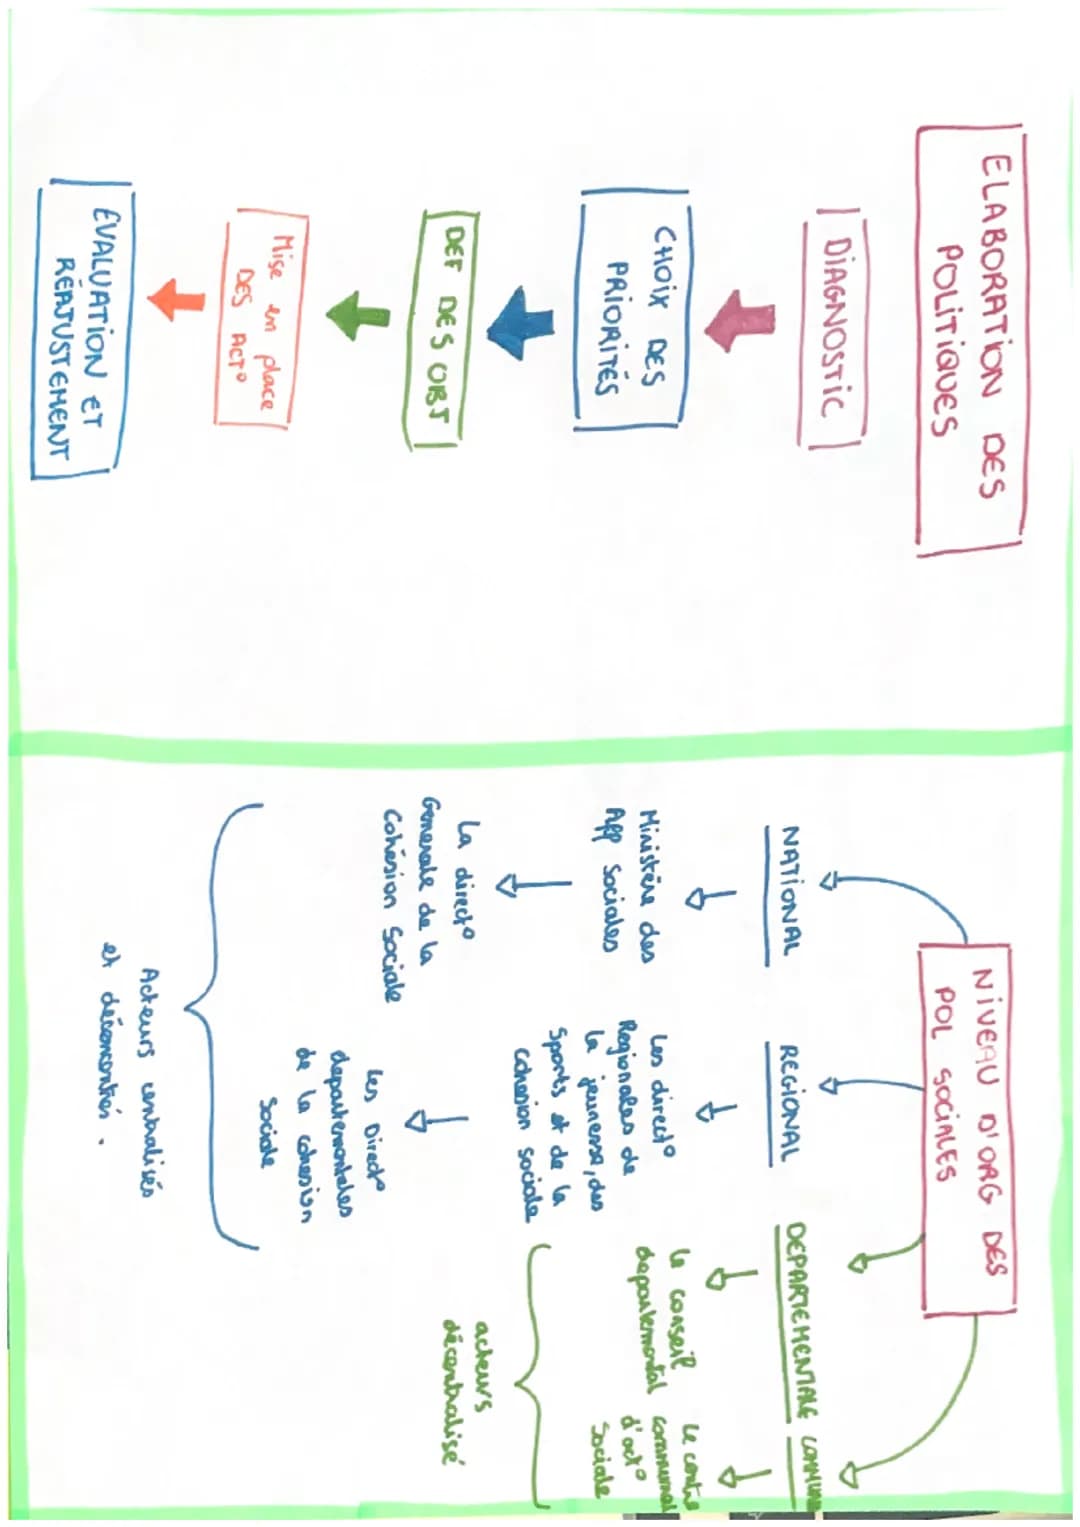 ELABORATION DES
POLITIQUES
DIAGNOSTIC
CHOIX DES
PRIORITÉS
DEF DES OBJ
Mise en place
DES ACT°
EVALUATION ET
RÉAJUSTEMENT
NIVEAU D'ORG DES
POL SOCIALES
NATIONAL
Ministère des
Aff Sociales
La direct°
Generale de la
Cohésion Sociale
REGIONAL
Les direct°
Regionales de
la jeunesse, des
Sports et de la
cohesion sociale
Les Direct°
departementales
de la cohesion
Sociale
Acteurs centralisés
et déconcentrés.
DEPARTEMENTALE
Le conseil
departemental
COMMUNE
Le centre
communal
d'act°
Sociale
acteurs
décentralisé